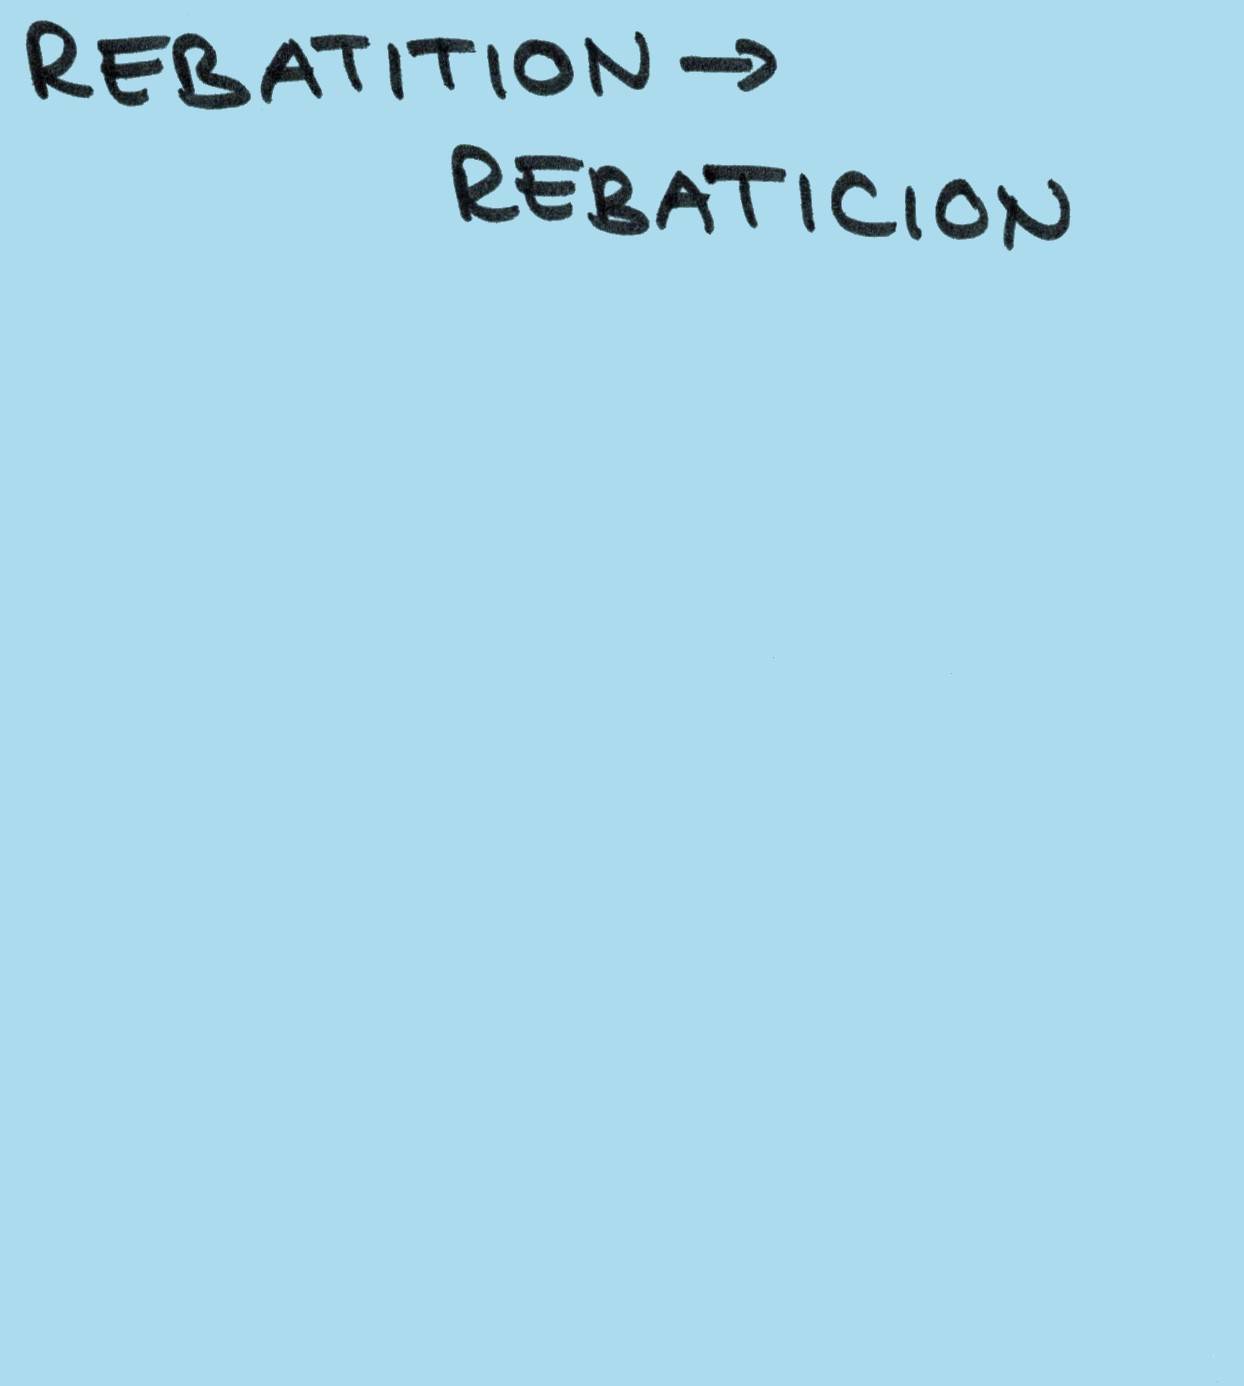 REBATITION →
REBATICION